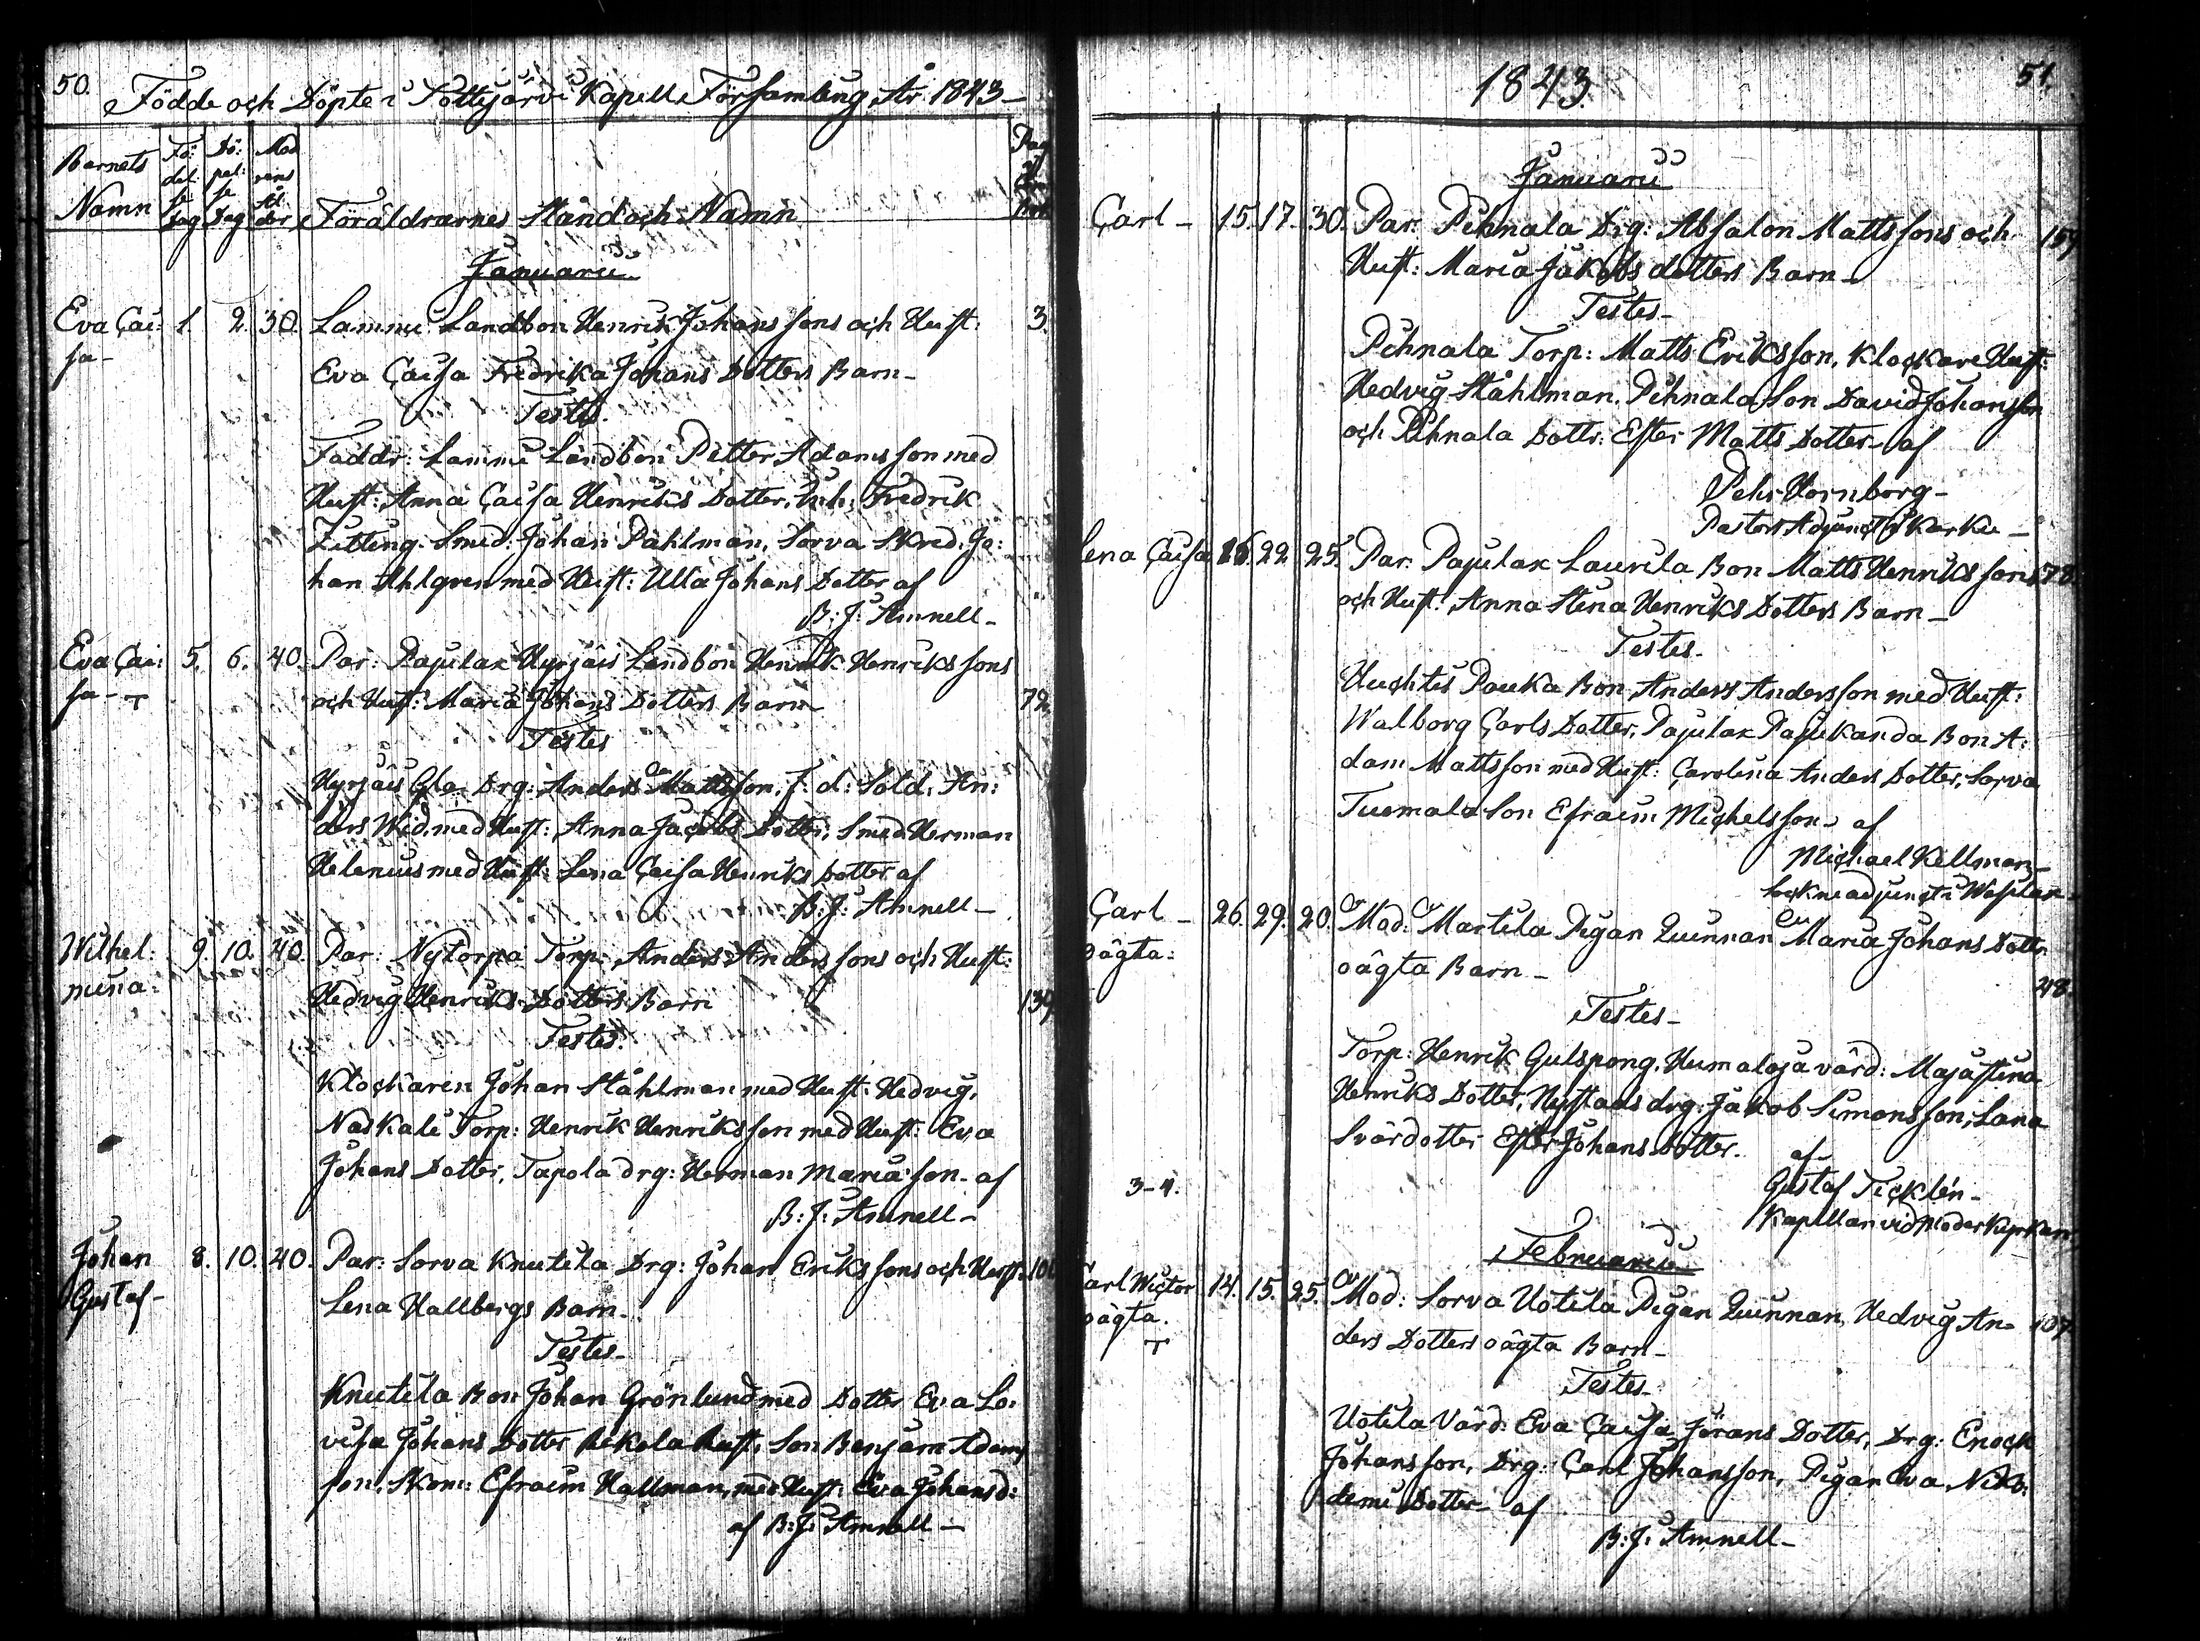 50.
Födde och Döpte i Tottijärvi Kapells Församling År 1843
Barnets Namn
Fö: del: se Dag
Dö: pel: se Dag
Mod rens Ål der
Föräldrarnes Stånd och Namn
Januarii
Eva Cai: 1. 2. 30. Lammi Landbon Henrik Johans sons och Hust: 3.
sa- Eva Caisa Fredrika Johans Dotters Barn-
Testes.
Faddr: Lammi Landbon Petter Adams son med
Hust: Anna Caisa Henriks Dotter, Inh: Fredrik
Zitting. Smed: Johan Påhlman, Sorva Skred. Jo:
han Ahlgren med Hust: Ulla Johans Dotter af
B: J: Amnell-
Eva Cai: 5. 6. 40. Par: Pajulax Hyrjäis Landbon Henrik Henriks sons
sa- och Hust: Maria Johans Dotters Barn- 72
Testes
Hyrjäis Drg: Anders Mattsson, F: d: Sold: An:
ders Wid, med Hust: Anna Jacobs Dotter, Smed Herman
Helenius med Hust: Lena Caisa Henriks Dotter af
B: J: Amnell-
Wilhel: 9. 10. 40. Par: Nytorpa Torp: Anders Anders sons och Hust:
mina: Hedvig Henriks Dotters Barn 139
Testes.
Klockaren Johan Ståhlman med Hust: Hedvig,
Naskali Torp: Henrik Henriksson med Hust: Eva
Johans Dotter, Tapola drg: Herman Maria son- af
B: J: Amnell-
Johan 8. 10. 40. Par: Sorva Knutila Drg: Johan Eriks sons och Hust: 100
Gustaf- Lena Hallbergs Barn.
Testes-
Knutila Bon Johan Grönlund med Dotter Eva Lo:
visa Johans Dotter Rekola Hust: Son Benjam Adams
son, Skom: Efraim Hallman, med Hust: Eva Johansd:
af B: J: Amnell-
1843. 51.
Januarii
Carl- 15. 17. 30. Par: Pihnala Drg: Absalon Mattssons och 159
Hust: Maria Jakobs dotters Barn-
Testes-
Pihnala Torp: Matts Eriksson, Klockare Hust:
Hedvig Ståhlman, Pihnala Son David Johansson
och Pihnala Dottr: Ester Matts Dotter- af
Pehr Hornborg-
Pastors Adjunct i Karkku-
Lena Caisa 16. 22. 25. Par: Pajulax Laurila Bon Matts Henriks sons 78.
och Hust: Anna Stina Henriks Dotters Barn-
Testes-
Huchtis Pauka Bon Anders Andersson med Hust:
Walborg Carls Dotter, Pajulax Pajukanda Bon A:
dam Mattsson med Hust: Carolina Anders Dotter, Sorva
Tuomala Son Efraim Michelsson- af
Michael Kellman-
Sockneadjunct i Wesilax-
Carl- 26. 29. 20. Mod: Martila Pigan Quinnan Maria Johans Dottr:
oägta: oägta Barn- 48.
Testes-
Torp: Henrik Gulspong, Humaloja värd: Majastina
Henriks Dotter, Nystads drg: Jakob Simonsson, Lana
Svärdotter Ester Johans Dotter.
af
Gustaf Ticklén-
3-4. Kapellan vid Moderkyrkan
Februarii
Carl Wictor 14. 15. 25. Mod: Sorva Uotila Pigan Quinnan, Hedvig An- 107
oägta. ders Dotters oägta Barn-
Testes-
Uotila Värd: Eva Caisa Jörans Dotter, Drg: Enock
Johansson, Drg: Carl Johansson, Pigan Eva Niko:
demi Dotter- af
B: J: Amnell-